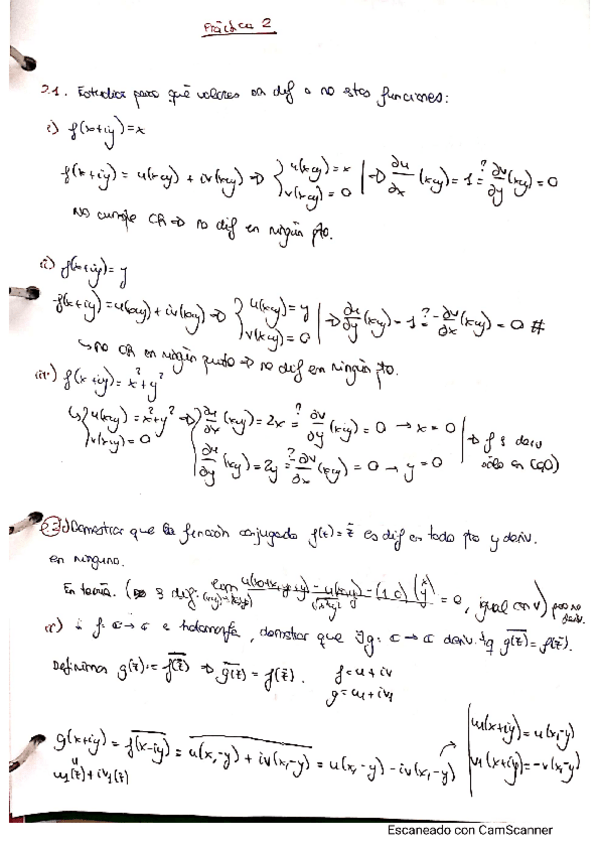 Práctica 2
2.1. Estudiar para qué valores son dif o no estas funciones:
i) f(x+iy)=x
f(x+iy) = u(x,y) + iv(x,y) ⇒ { u(x,y) = x | v(x,y) = 0 | ⇒ ∂u/∂x (x,y) = 1 =? ∂v/∂y (x,y) = 0
No cumple CR ⇒ no dif en ningún pto.
ii) f(x+iy) = y
f(x+iy) = u(x,y) + iv(x,y) ⇒ { u(x,y) = y | v(x,y) = 0 | ⇒ ∂u/∂y (x,y) = 1 =? -∂v/∂x (x,y) = 0 #
↳ no CR en ningún punto ⇒ no dif en ningún pto.
iii) f(x+iy) = x²+y²
↳ { u(x,y) = x²+y² ⇒ { ∂u/∂x (x,y) = 2x =? ∂v/∂y (x,y) = 0 → x = 0
v(x,y) = 0 ∂u/∂y (x,y) = 2y =? -∂v/∂x (x,y) = 0 → y = 0 | ⇒ f es deriv sólo en (0,0)
i) Demostrar que la función conjugada f(z) = z̄ es dif en todo pto y deriv.
en ninguno.
En teoría. = 0, igual con v)
ii) f: ℂ→ℂ holomorfa, demostrar que ∃g: ℂ→ℂ deriv. tq g(z)‾ = f(z̄).
Definimos g(z) := f(z̄)‾ ⇒ g(z)‾ = f(z̄). f = u + iv
g = u₁ + iv₁
g(x+iy) = f(x-iy)‾ = u(x,-y) + iv(x,-y)‾ = u(x,-y) - iv(x,-y) | u₁(x+iy) = u(x,-y)
u₁(z) + iv₁(z) | v₁(x+iy) = -v(x,-y)
Escaneado con CamScanner